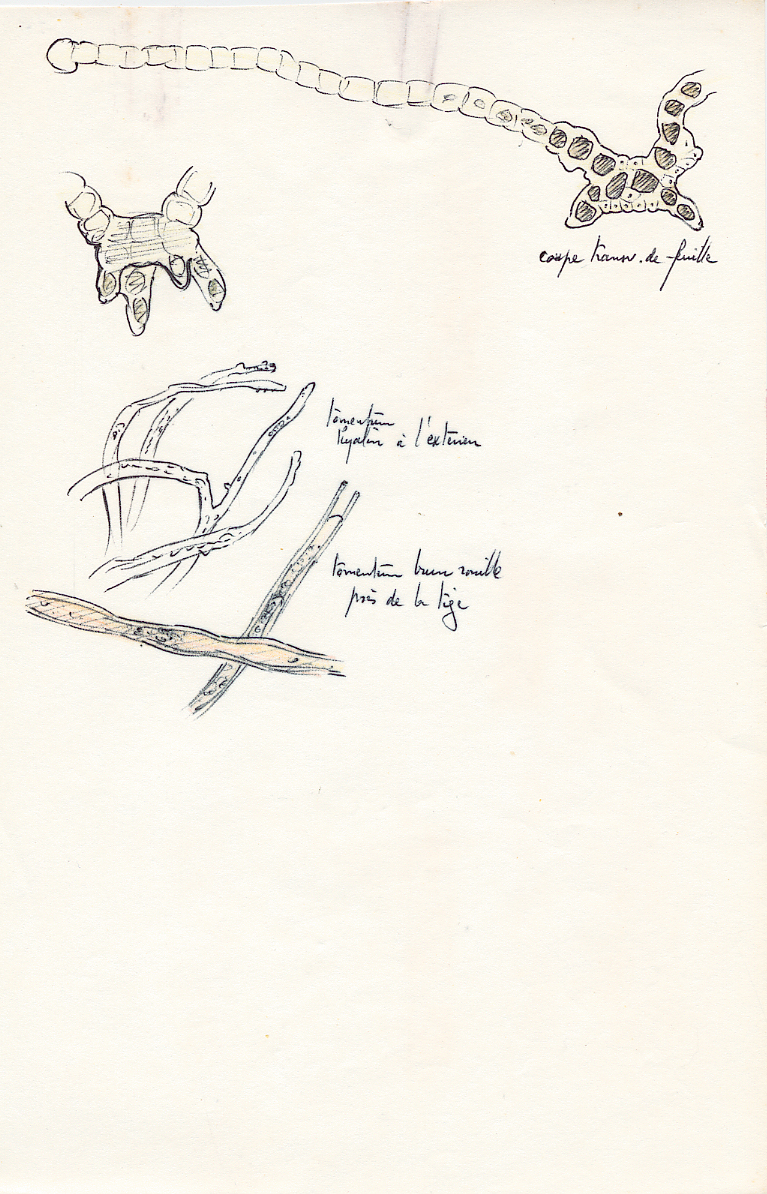 coupe transv. de feuille
tomentum
hyalin à l'extérieur
tomentum brun rouille
près de la tige